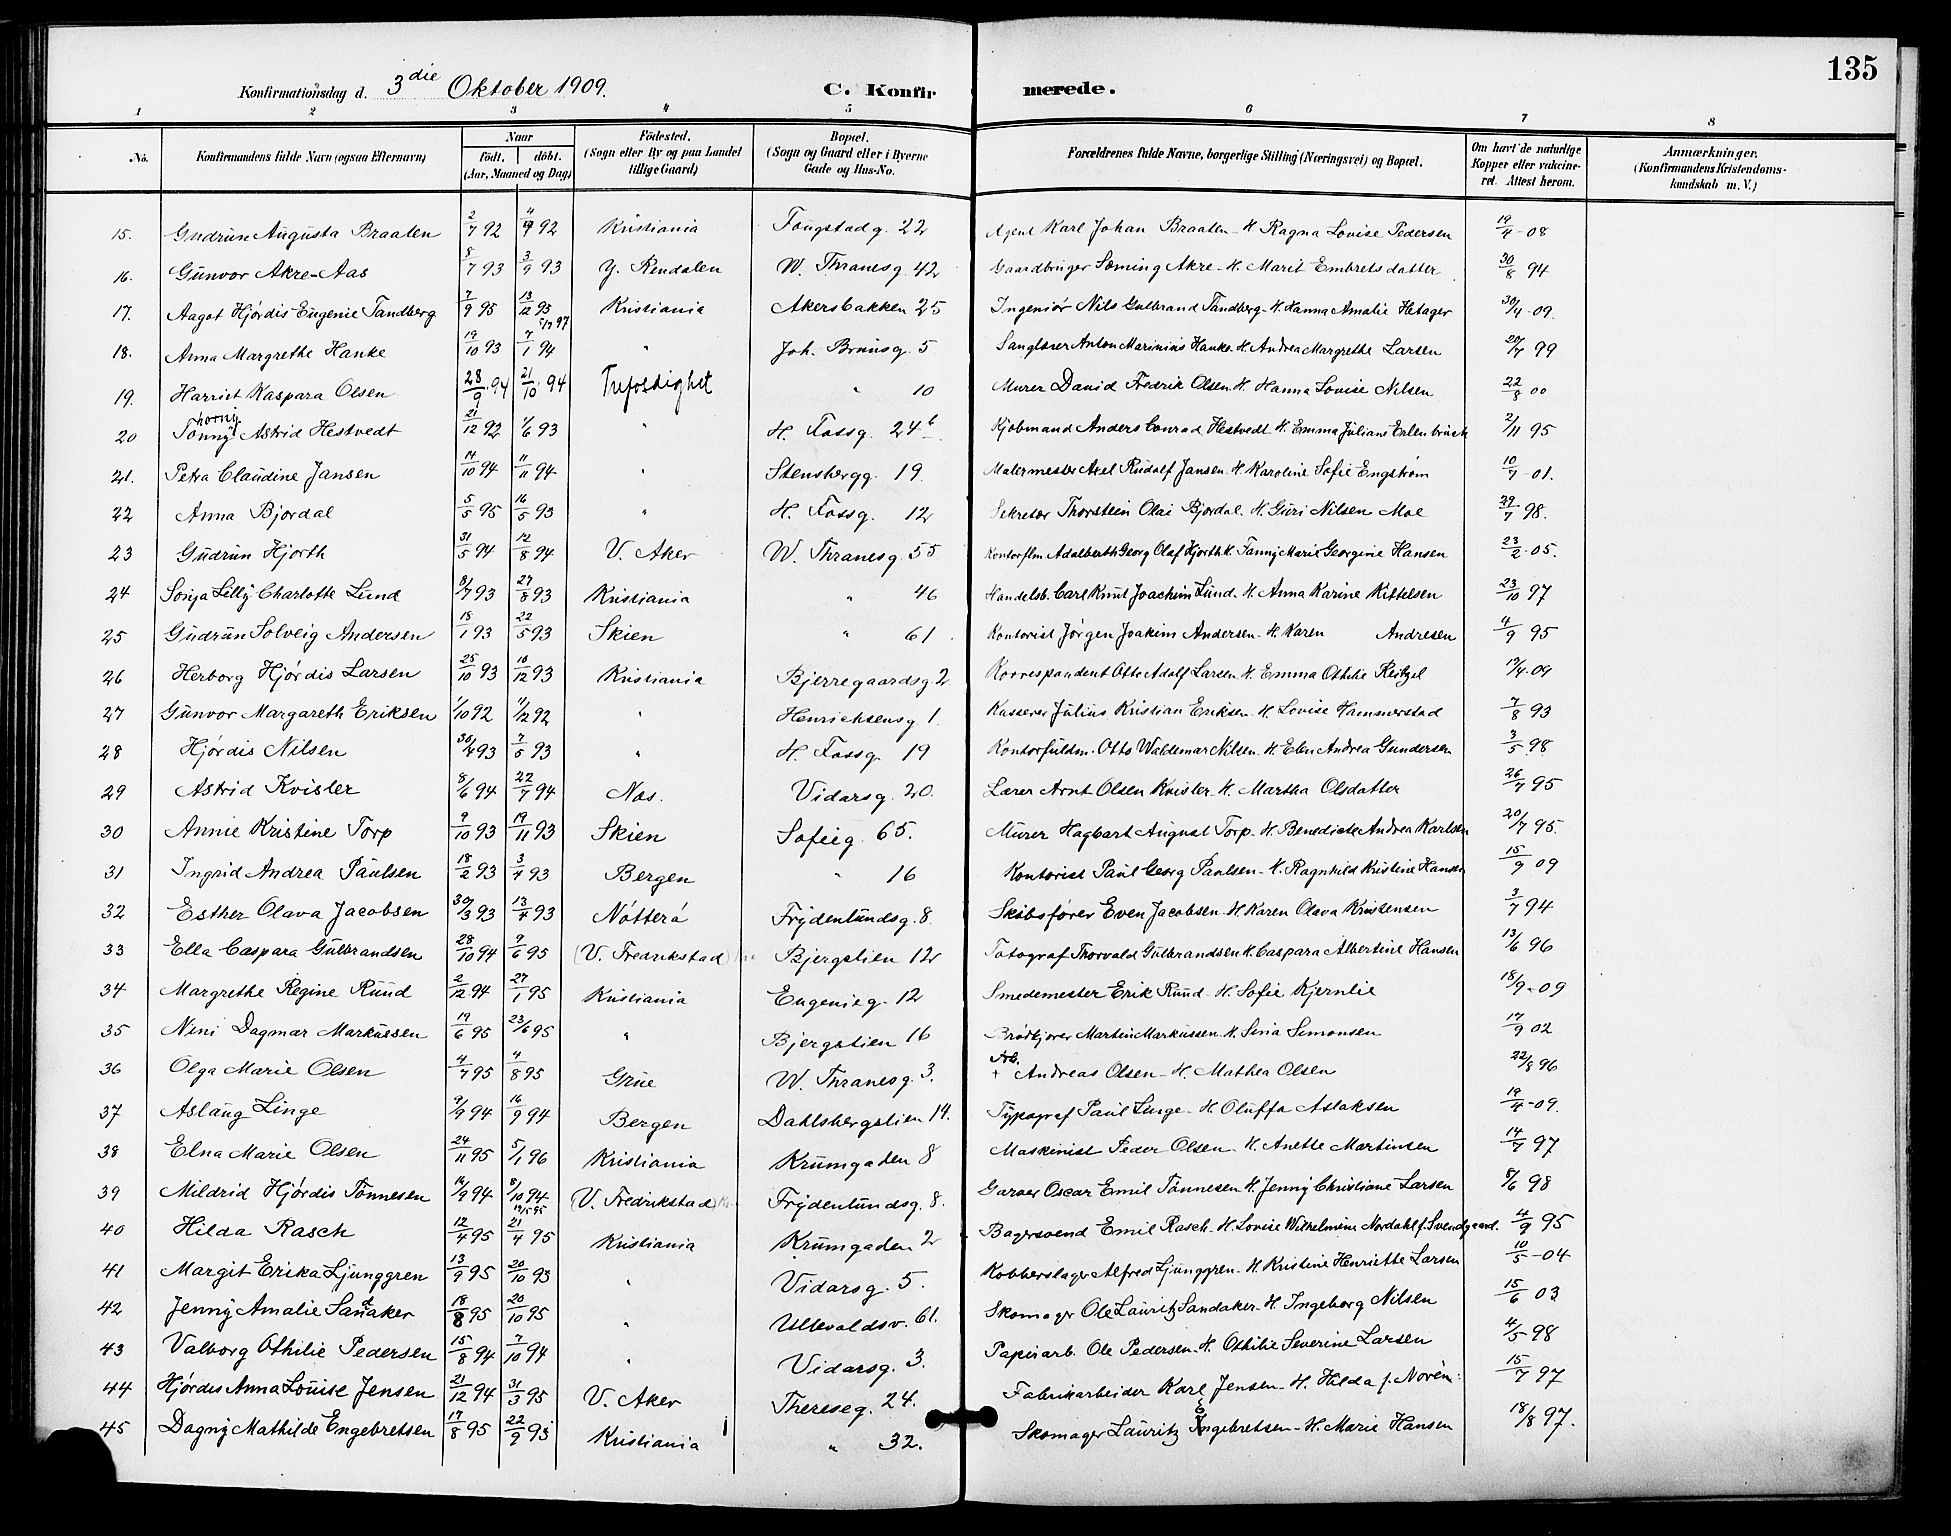 135
Konfirmationsdag d. 3die Oktober 1909. C. Konfirmerede.
1 2 3 4 5 6 7 8
No. Konfirmandens fulde Navn (ogsaa Efternavn) Naar födt. döbt. (Aar, Maaned og Dag) Födested. (Sogn eller By og paa Landet tillige Gaard) Bopæl. (Sogn og Gaard eller i Byerne Gade og Hus-No. Forældrenes fulde Navne, borgerlige Stilling (Næringsvei) og Bopæl. Om havt de naturlige Kopper eller vakcineret. Attest herom. Anmærkninger. (Konfirmandens Kristendomskundskab m. V.)
15. Gudrun Augusta Braaten 2/7 92 4/9 92 Kristiania Tougstadg. 22 Agent Karl Johan Braaten - H. Ragna Lovise Pedersen 19/4-08
16. Gunvor Akre-Aas 8/7 93 3/9 93 Y. Rendalen W. Thranesg. 42 Gaardbruger Sæming Akre - H. Marit Embretsdatter 30/8 94
17. Aagot Hjórdis Eugenie Tandberg 7/9 95 13/12 95 Kristiania Akersbakken 25 Ingeniór Nils Gulbrand Tandberg - H. Hanna Amalie Hetager 30/4-09.
18. Anna Margrethe Hanke 19/10 93 7/1 94 " Joh. Brunsg. 5 Sanglærer Anton Marinius Hanke - H. Andrea Margrethe Larsen 20/7 99
19. Harriet Kaspara Olsen 28/9 94 21/10 94 Trefoldighet " 10 Murer David Fredrik Olsen - H. Hanna Lovise Nilsen 22/8 00
20 Tonny Astrid Hestvedt 21/12 92 1/6 93 " H. Fossg. 24b Kjöbmand Anders Conrad Hestvedt H. Emma Juliane Erlenbusch 2/11 95
Thorny
21. Petra Claudine Jansen 14/10 94 11/11 94 " Stensbergg. 19. Malermester Axel Rudolf Jansen - H. Karoline Sofie Engström 10/7-01.
22 Anna Bjordal 5/5 95 16/5 93 " H. Fossg. 12 Sekretær Thorstein Olai Bjordal. H. Guri Nilsen Moe 29/7 98.
23 Gudrun Hjorth 31/5 94 12/8 94 V. Aker W. Thranesg. 55 Kontorflm Adalberth Georg Olaf Hjorth H. Fanny Marie Georgine Hansen 23/2-05.
24 Sonja Lilly Charlotte Lund 8/7 93 27/8 93 Kristiania " 46 Handelsb. Carl Knut Joachim Lund. H. Anna Karine Kittelsen 23/10 97
25 Gudrun Solveig Andersen 18/1 93 22/5 93 Skien " 61. Kontorist Jórgen Joakim Andersen - H. Karen Andresen 4/9 95
26 Herborg Hjórdis Larsen 25/10 93 10/12 93 Kristiania Bjerregaardsg. 2 Korrespondent Otto Adolf Larsen H. Emma Othilie Reitzel 19/4-09
27 Gunvor Margareth Eriksen 1/10 92 11/12 92 " Henrichsensg 1. Kasserer Julius Kristian Eriksen - H. Lovise Hammerstad 7/8 93
28 Hjórdis Nilsen 30/4 93 7/5 93 " H. Fossg. 19 Kontorfuldm. Otto Waldemar Nilsen - H. Elen Andrea Gundersen 3/5 98
29 Astrid Kvisler 8/6 94 22/7 94 Nes. Vidarsg. 20. Lærer Arnt Olsen Kvisler - H. Martha Olsdatter 26/7 95
30 Annie Kristine Torp 9/10 93 19/11 93 Skien Sofieg. 65. Murer Hagbart August Torp - H. Benedicte Andrea Karlsen 20/7 95.
31 Ingrid Andrea Paulsen 18/2 93 3/4 93 Bergen " 16 Kontorist Paul Georg Paulsen - H. Ragnhild Kristine Hansen 15/9 09
32 Esther Olava Jacobsen 30/3 93 13/4 93 Nótteró Frydenlundsg. 8. Skibsfórer Even Jacobsen - H. Karen Olava Kristensen 3/7 94
33 Ella Caspara Gulbrandsen 28/10 94 9/6 95 (V. Fredrikstad) Bjergstien 12 Fotograf Thorvald Gulbrandsen H. Caspara Albertine Hansen 13/6 96
34 Margrethe Regine Ruud 2/12 94 27/1 95 Kristiania Eugenieg. 12 Smedemester Erik Ruud - H. Sofie Kjernlie 18/9-09
35 Nini Dagmar Markussen 19/6 95 23/6 95 " Bjergstien 16 Brödkjórer Martin Markussen - H. Sina Simonsen 17/9 02
36 Olga Marie Olsen 4/7 95 4/8 95 Grue W. Thranesg. 3. Arb. + Andreas Olsen - H. Mathea Olsen 22/8 96
37 Aslaug Linge 9/9 94 16/9 94 Bergen Dahlsbergstien 14. Typograf Paul Linge - H. Oluffa Aslaksen 19/4-09.
38 Elna Marie Olsen 24/11 95 5/1 96 Kristiania Krumgaden 8 Maskinist Peder Olsen - H. Anette Martinsen 14/7 97
39 Mildrid Hjórdis Tónnesen 16/9 94 8/10 94 (V. Fredrikstad) Frydenlundsg. 8. Garver Oscar Emil Tónnesen H. Jenny Christiane Larsen 8/6 98
40 Hilda Rasch 12/4 95 21/4 95 Kristiania Krumgaden 2 Bagersvend Emil Rasch - H. Lovise Wilhelmine Nordahl f. Svendgaard. 4/9 95
41 Margit Erika Ljunggren 13/9 95 20/10 93 " Vidarsg. 5. Kobberslager Alfred Ljunggren - H. Kristine Henriette Larsen 10/5-04
42 Jenny Amalie Sandaker 18/8 95 20/10 95 " Ullevoldsv. 61. Skomager Ole Lauritz Sandaker - H. Ingeborg Nilsen 15/6 03
43 Valborg Othilie Pedersen 15/8 94 7/10 94 " Vidarsg. 3. Papirarb. Ole Pedersen - H. Othilie Severine Larsen 4/5-98
44 Hjórdis Anna Louise Jensen 21/12 94 31/3 95 V. Aker Thereseg. 24. Fabrikarbeider Karl Jensen - H. Hilda f. Norén 15/7 97
45 Dagny Mathilde Engebretsen 17/8 95 22/9 95 Kristiania " 32. Skomager Lauritz Engebretsen - H. Marie Hansen 18/8 97.